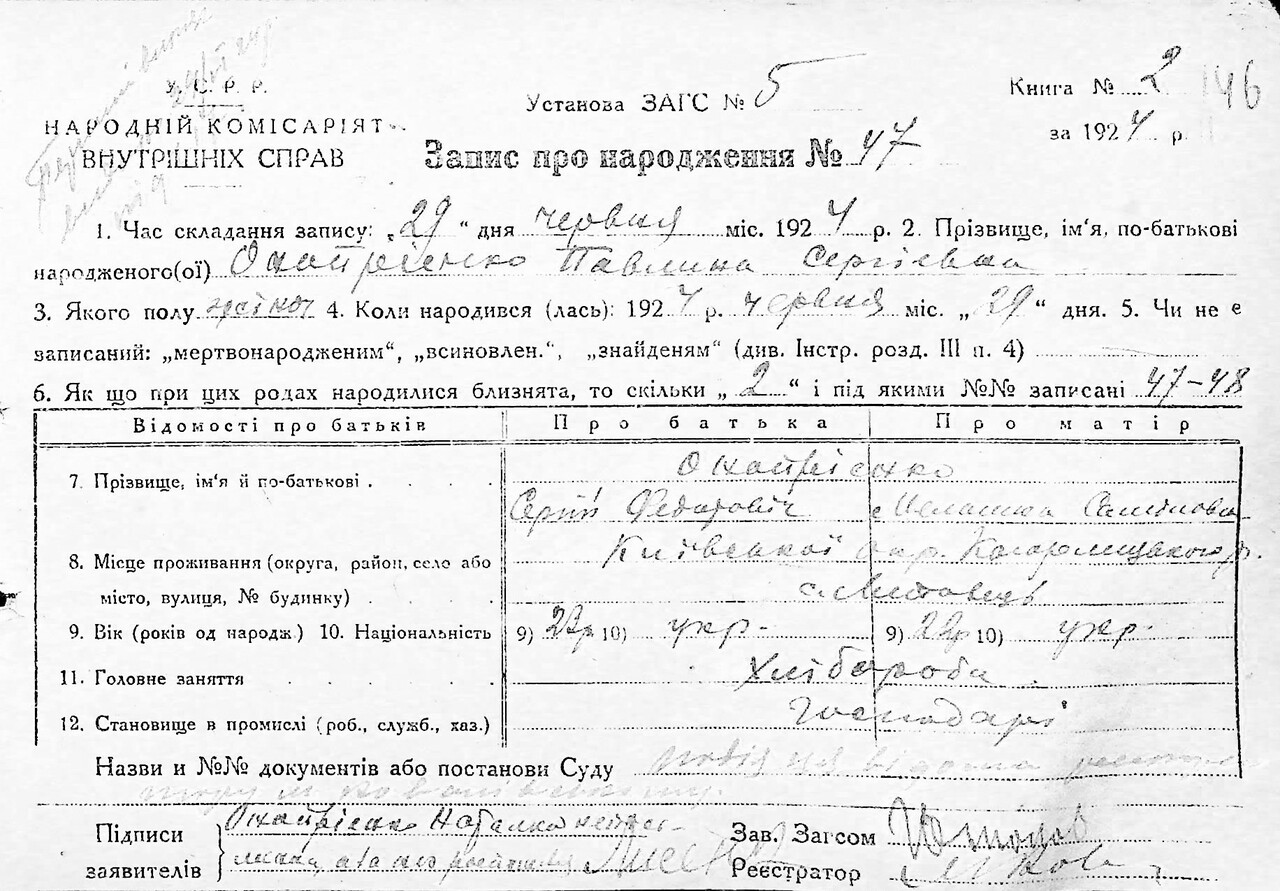 У. С. Р. Р.
НАРОДНІЙ КОМІСАРІЯТ
ВНУТРІШНІХ СПРАВ
Установа ЗАГС № 5
Книга № 2 146
за 1924 р.
Запис про народження № 47
1. Час складання запису: „29“ дня червня міс. 1924 р. 2. Прізвище, ім'я, по-батькові
народженого(ої) Онопрієнко Павлина Сергієвна
3. Якого полу жіноч 4. Коли народився (лась): 1924 р. червня міс. „29“ дня. 5. Чи не є
записаний: „мертвонародженим“, „всиновлен.“, „знайденям“ (див. Інстр. розд. III п. 4)
6. Як що при цих родах народилися близнята, то скільки „2“ і під якими №№ записані 47-48
Відомості про батьків Про батька Про матір
7. Прізвище, ім'я й по-батькові . . . . Онопрієнко
Сергій Федорович Мелашка
8. Місце проживання (округа, район, село або Київської окр. Кагарлицького р.
місто, вулиця, № будинку) . . . .
9. Вік (років од народж.) 10. Національність 9) 10) укр. 9) 10) укр.
11. Головне заняття . . . . . Хлібороби
12. Становище в промислі (роб., служб., хаз.) Господарі
Назви и №№ документів або постанови Суду подія ця відома
Підписи Онопрієнко
заявителів
Зав. Загсом
Реєстратор